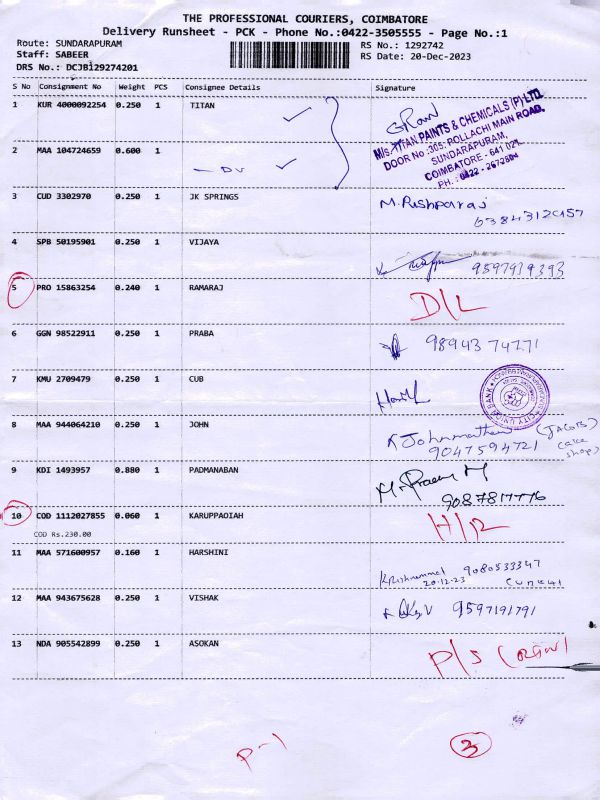 THE PROFESSIONAL COURIERS, COIMBATORE
Delivery Runsheet - PCK - Phone No.:0422-3505555 - Page No.:1
Route: SUNDARAPURAM
Staff: SABEER
DRS No.: DCJB129274201
RS No.: 1292742
RS Date: 20-Dec-2023
S No Consignment No Weight PCS Consignee Details Signature
1 KUR 4000092254 0.250 1 TITAN
M/s. TITAN PAINTS & CHEMICALS (P) LTD.
DOOR No.:305, POLLACHI MAIN ROAD,
SUNDARAPURAM,
COIMBATORE - 641 021
PH.: 0422 - 2672804
2 MAA 104724659 0.600 1
3 CUD 3302970 0.250 1 JK SPRINGS M.Pushparaj
4 SPB 50195901 0.250 1 VIJAYA 9597919393
5 PRO 15863254 0.240 1 RAMARAJ D/L
6 GGN 98522911 0.250 1 PRABA 98943 74771
7 KMU 2709479 0.250 1 CUB
CITY UNION BANK
8 MAA 944064210 0.250 1 JOHN (JACOBS cake shop)
9047594721
9 KDI 1493957 0.880 1 PADMANABAN
9087817776
10 COD 1112027855 0.060 1 KARUPPAOIAH
COD Rs.230.00
11 MAA 571600957 0.160 1 HARSHINI 9080533347
20-12-23
12 MAA 943675628 0.250 1 VISHAK 9597191791
13 NDA 905542899 0.250 1 ASOKAN P/S
P-1
3